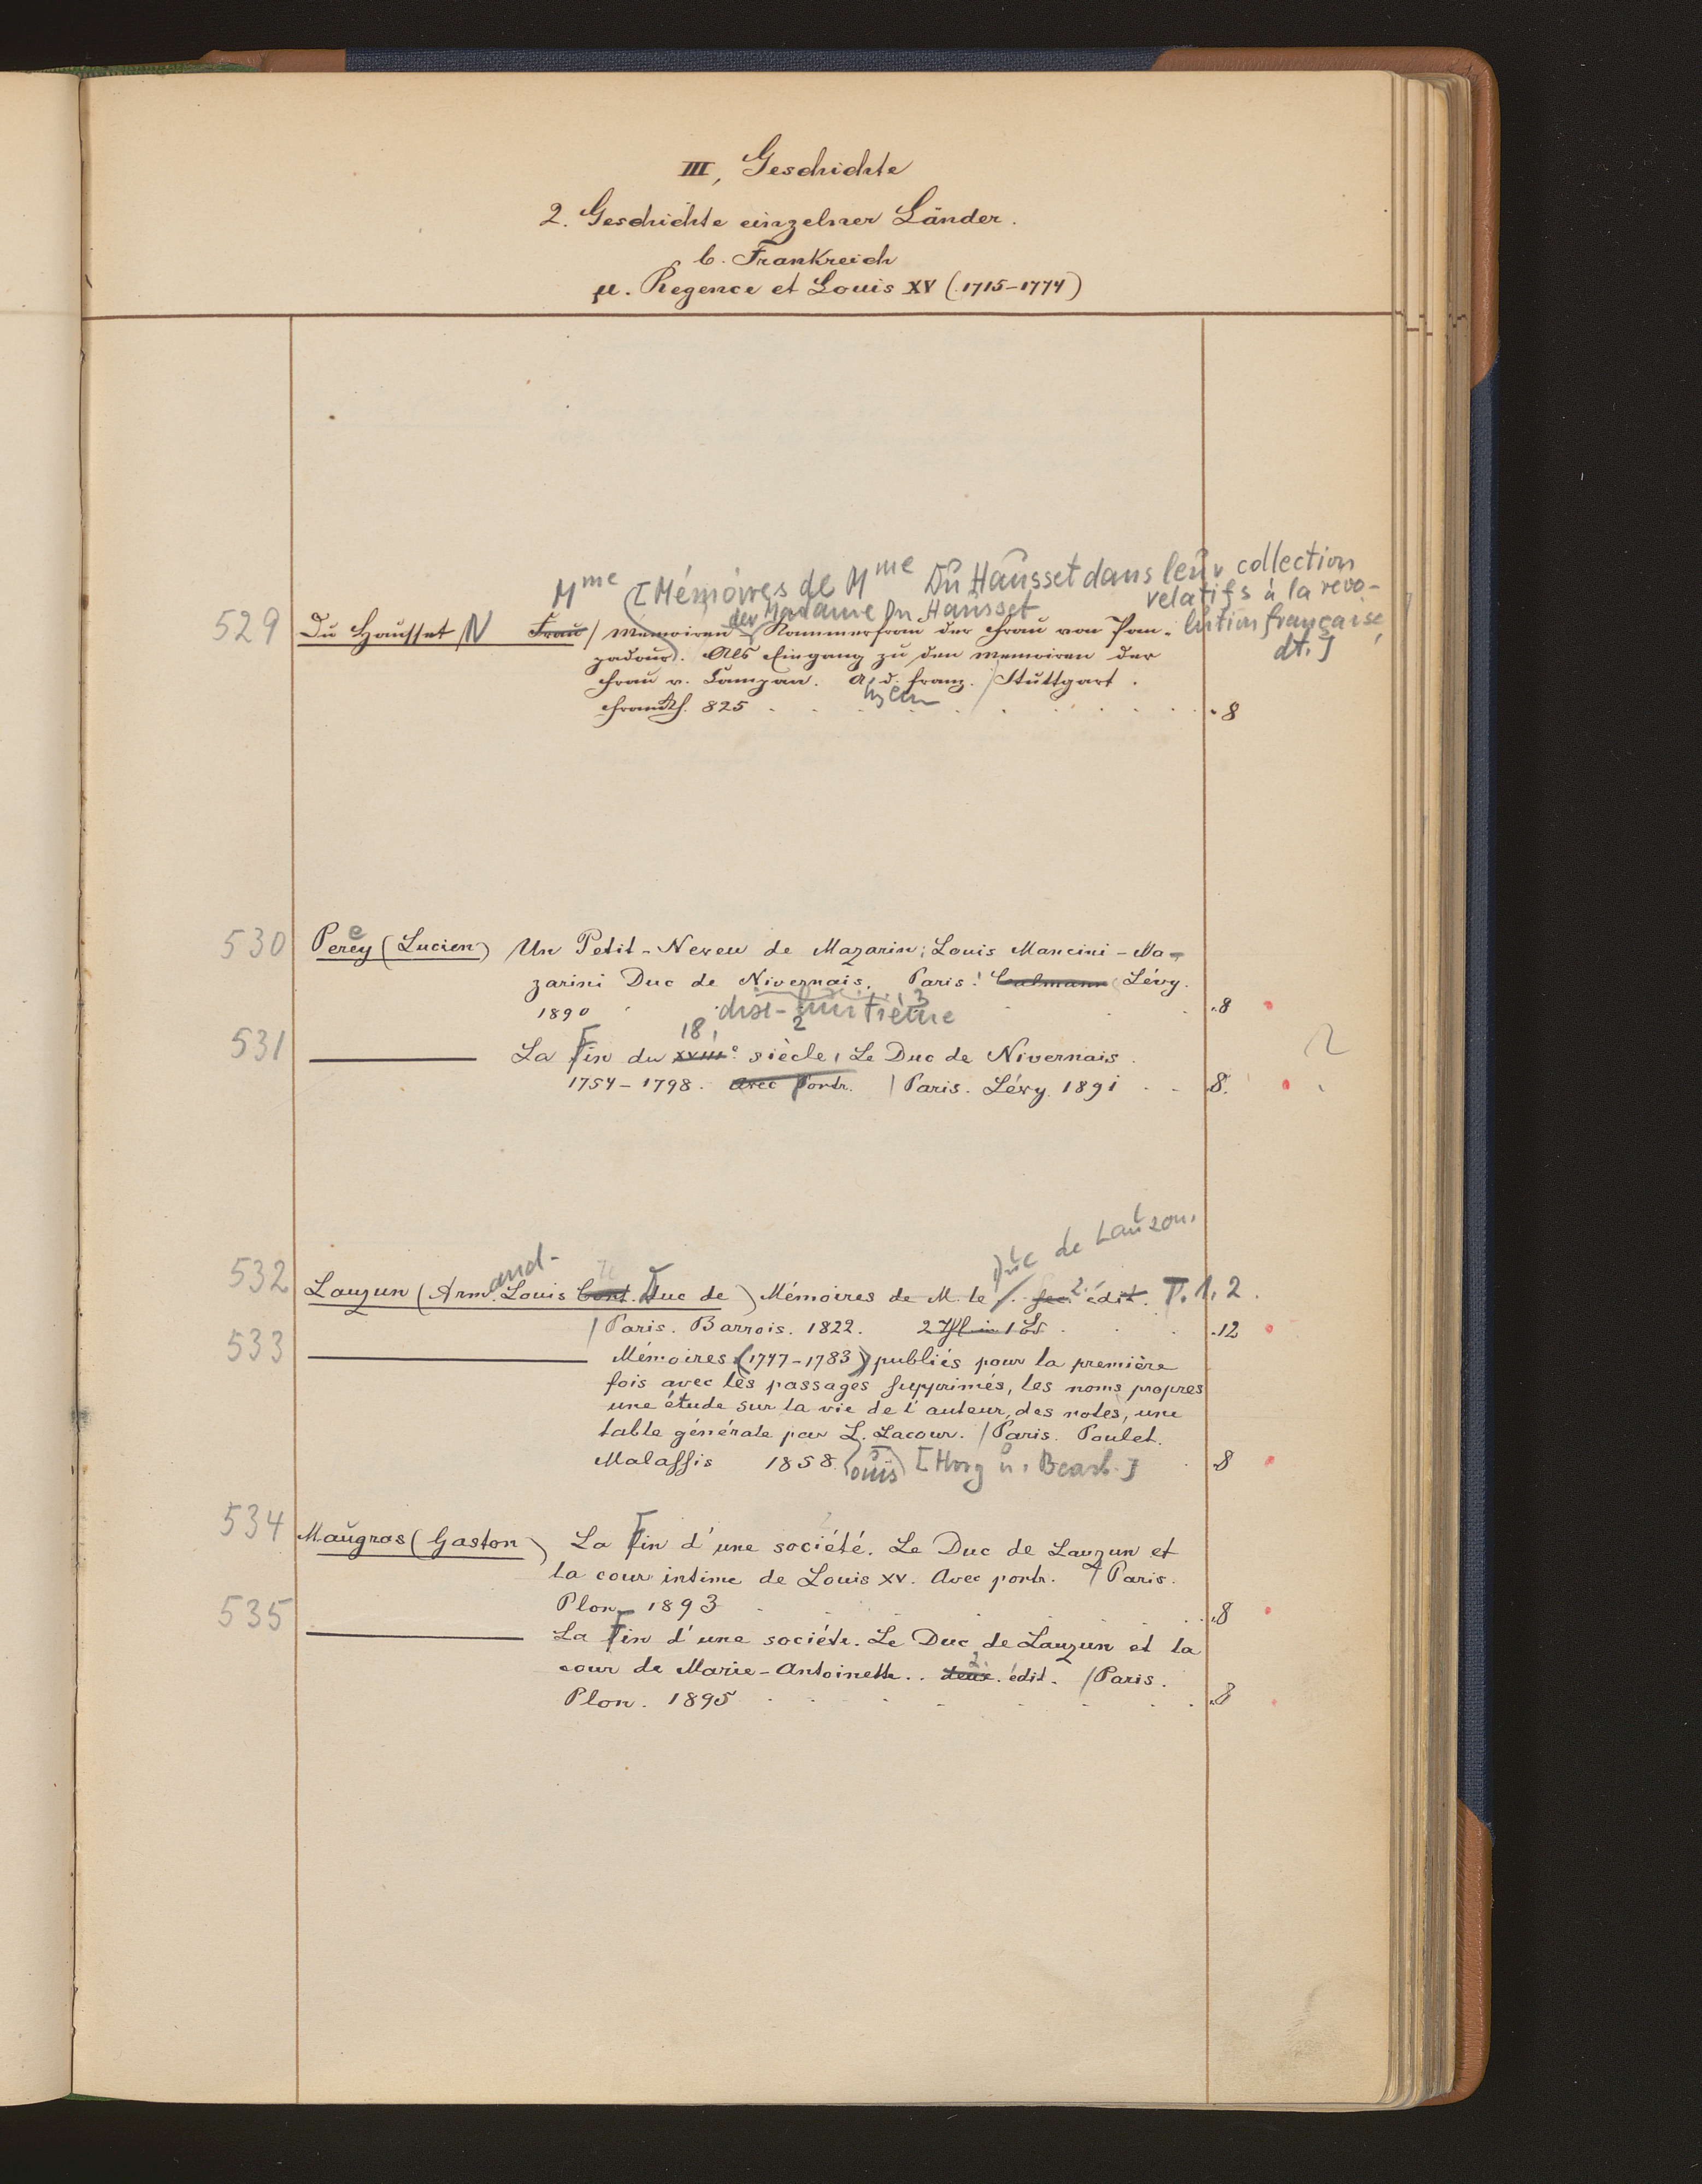 III, Geschichte
2. Geschichte einzelner Länder.
b. Frankreich
μ. Regence et Louis XV (1715-1774)
Mme [Mémoires de Mme Du Hausset dans leur collection
relatifs à la revo-
lution française,
dt.]
der Madame Du Hausset
529 Du Hausset N Frau / Memoiren Kammerfrau der Frau von Pom-
padour). Als Eingang zu den Memoiren der
Frau v. Campan. A. d. Franz. / Stuttgart.
Franckh. 825 8
530 Perey (Lucien) Un Petit-Neveu de Mazarin; Louis Mancini-Ma-
zarini Duc de Nivernais. Paris: Calmann Lévy.
1890 8
dix-huitième
531 La Fin du XVIIIe 18. siècle, Le Duc de Nivernais.
1754-1798. Avec Portr. / Paris. Lévy. 1891 8.
Duc de Lauzun.
532 Lauzun (Armand Louis Cont. Duc de) Mémoires de M. le / . sec. 2. édit. T. 1, 2.
/ Paris. Barrois. 1822. 2 Thl in 1 Bd 12
533 Mémoires (1747-1783) publiés pour la première
fois avec les passages supprimés, les noms propres
une étude sur la vie de l'auteur, des notes, une
table générale par L. Lacour. / Paris. Poulet.
Malassis 1858 8
ouis [Hrsg u. Bearb.]
534 Maugras (Gaston) La Fin d'une société. Le Duc de Lauzun et
la cour intime de Louis XV. Avec portr. / Paris.
Plon 1893 8
535 La Fin d'une société. Le Duc de Lauzun et la
cour de Marie-Antoinette.. deux. 2. édit. / Paris.
Plon. 1895 8